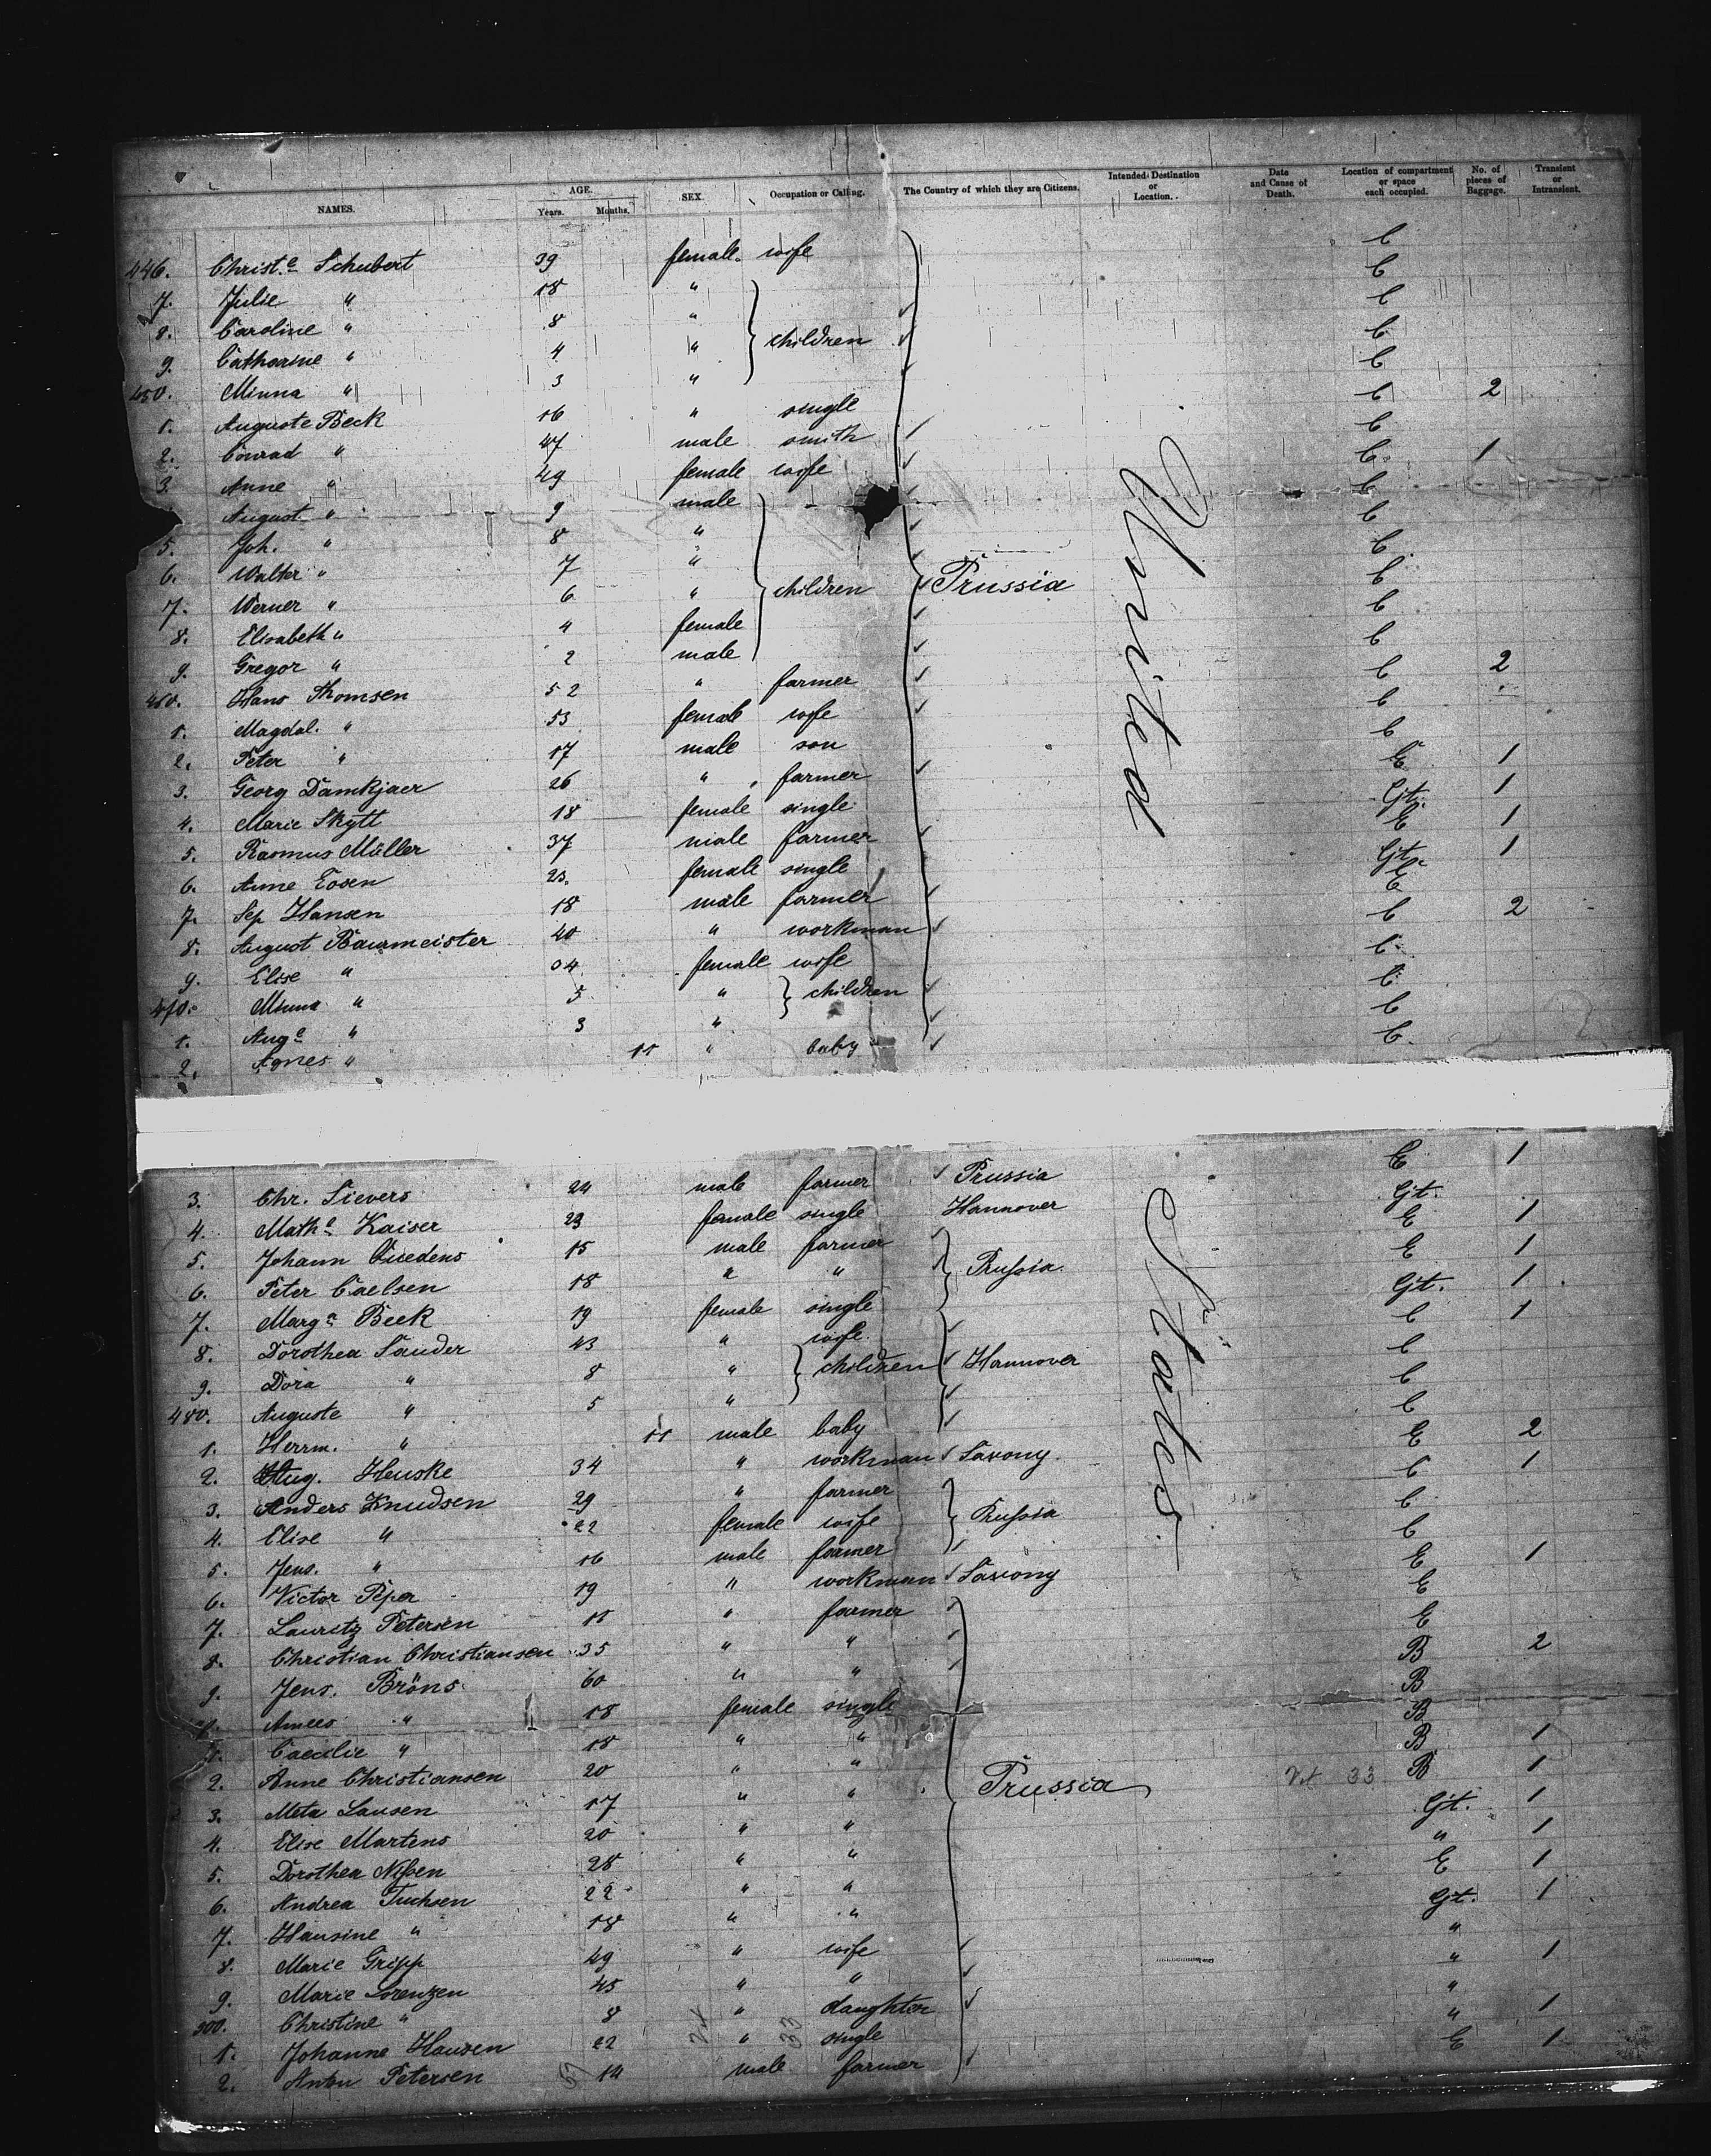 NAMES. AGE. Years. Months. SEX. Occupation or Calling. The Country of which they are Citizens. Intended Destination or Location. Date and Cause of Death. Location of compartment or space each occupied. No. of pieces of Baggage. Transient or Intransient.
446. Christ.e Schubert 39 female wife C
7. Julie " 18 " C
8. Caroline " 8 " children C
9. Catharine " 4 " C
450. Minna " 3 " C
1. Auguste Beck 16 " single C 2
2. Conrad " 47 male smith C
3. Anne " 49 female wife C 1
August " 9 male C
5. Joh. " 8 " C
6. Walter " 7 " C
7. Werner " 6 " children Prussia C
8. Elisabeth " 4 female C
9. Gregor " 2 male C
460. Hans Thomsen 52 " farmer C 2
1. Magdal. " 53 female wife C
2. Peter " 17 male son C
3. Georg Damkjaer 26 " farmer E 1
4. Marie Skytt 18 female single Gt. 1
5. Rasmus Müller 37 male farmer E 1
6. Anne Eosen 23 female single Gt. 1
7. Sep Hansen 18 male farmer E
8. August Baurmeister 40 " workman C 2
9. Elise " 04 female wife C
470. Minna " 5 " children C
1. Aug.e " 3 " C
2. Agnes " 11 " baby C
United
3. Chr. Sievers 24 male farmer Prussia E 1
4. Math.e Kaiser 23 female single Hannover Gt.
5. Johann Quedens 15 male farmer E 1
6. Peter Caelsen 18 " " Prussia E 1
7. Marg.a Beek 19 female single Gt. 1
8. Dorothea Sander 43 " wife C 1
9. Dora " 8 " children Hannover C
480. Auguste " 5 " C
1. Herrm. " 11 male baby C
2. Aug. Henske 34 " workman Saxony E 2
3. Anders Knudsen 29 " farmer C 1
4. Elise " 22 female wife Prussia C
5. Jens. " 16 male farmer C
6. Victor Peper 19 " workman Saxony E 1
7. Lauritz Petersen 18 " farmer E
8. Christian Christiansen 35 " " E
9. Jens. Bröns 60 " " B 2
" 18 female single B
1. Caecilie " 18 " " B
2. Anne Christiansen 20 " " B 1
3. Meta Lausen 17 " " Prussia B 1
4. Elise Martens 20 " " Gt. 1
5. Dorothea Nissen 28 " " " 1
6. Andrea Tuchsen 22 " " E 1
7. Hansine " 18 " " Gt. 1
8. Marie Gripp 49 " wife "
9. Marie Lorenzen 45 " " " 1
500. Christine " 8 " daughter "
1. Johanne Hansen 22 " single " 1
2. Anton Petersen 14 male farmer E 1
States